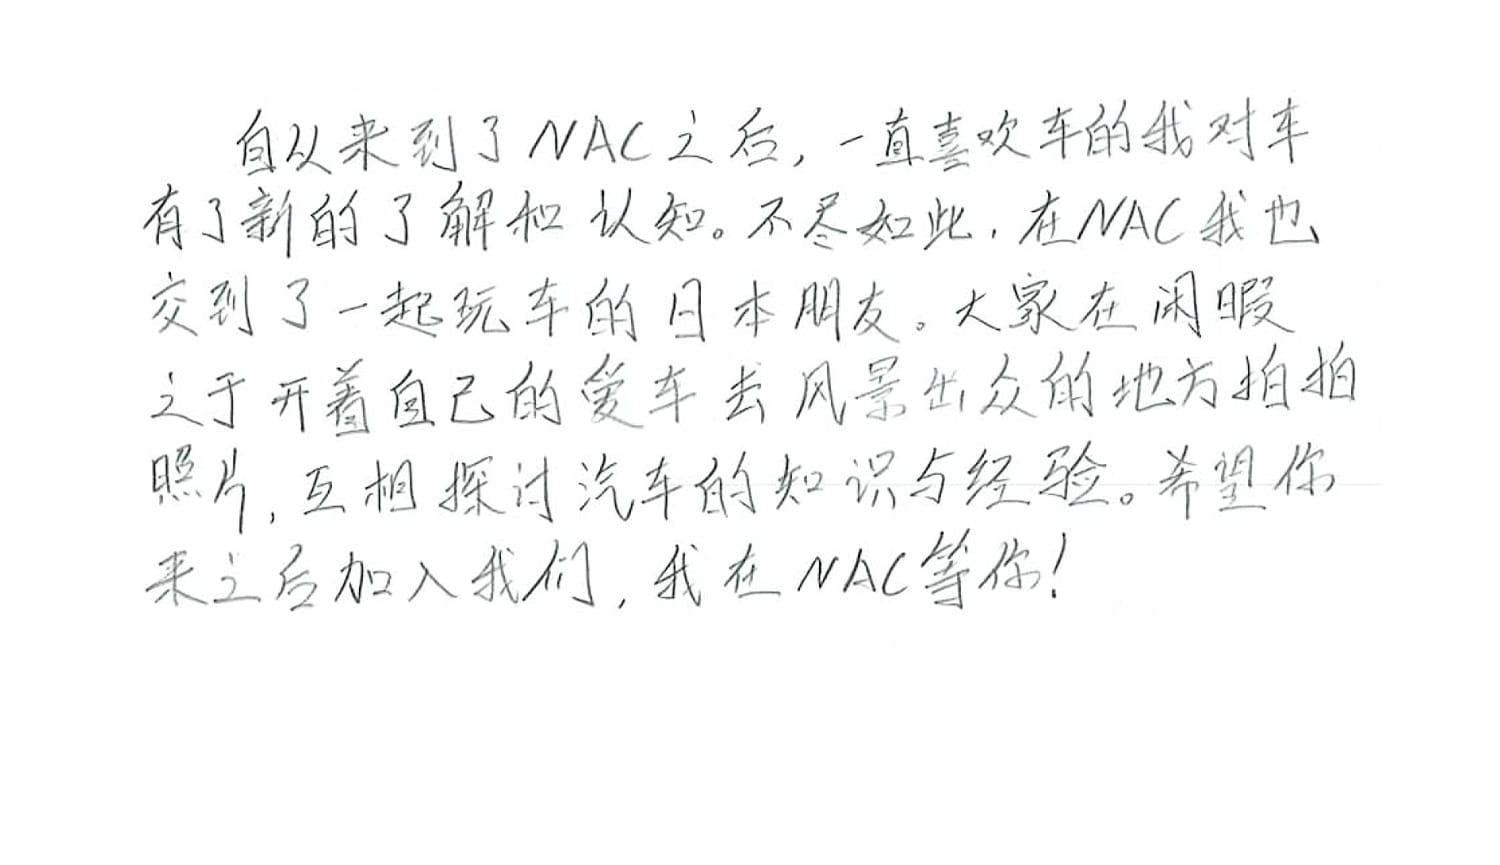 自从来到了NAC之后,一直喜欢车的我对车
有了新的了解和认知。不尽如此,在NAC我也
交到了一起玩车的日本朋友。大家在闲暇
之于开着自己的爱车去风景出众的地方拍拍
照片,互相探讨汽车的知识与经验。希望你
来之后加入我们,我在NAC等你!